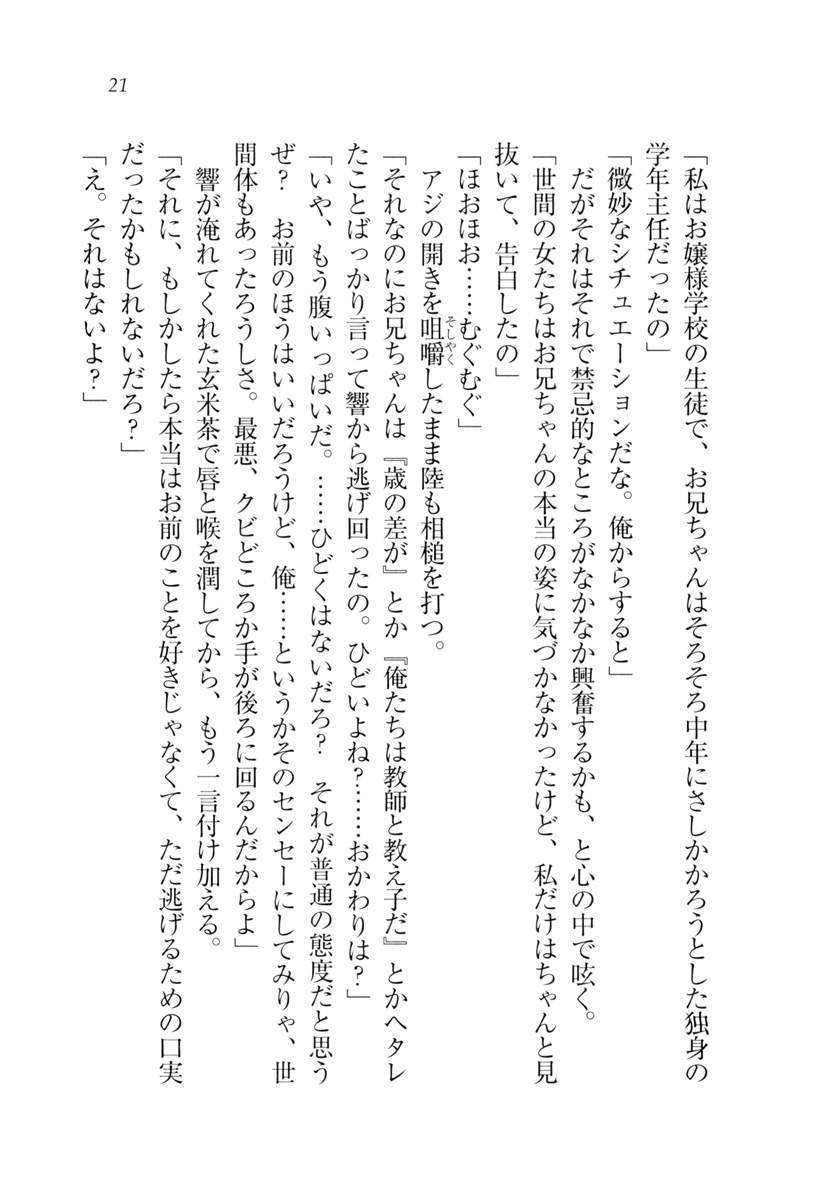 21
「私はお嬢様学校の生徒で、お兄ちゃんはそろそろ中年にさしかかろうとした独身の
学年主任だったの」
「微妙なシチュエーションだな。俺からすると」
だがそれはそれで禁忌的なところがなかなか興奮するかも、と心の中で呟く。
「世間の女たちはお兄ちゃんの本当の姿に気づかなかったけど、私だけはちゃんと見
抜いて、告白したの」
「ほおほお……むぐむぐ」
アジの開きを咀嚼したまま陸も相槌を打つ。
「それなのにお兄ちゃんは『歳の差が』とか『俺たちは教師と教え子だ』とかヘタレ
たことばっかり言って響から逃げ回ったの。ひどいよね?……おかわりは?」
「いや、もう腹いっぱいだ。……ひどくはないだろ? それが普通の態度だと思う
ぜ? お前のほうはいいだろうけど、俺……というかそのセンセーにしてみりゃ、世
間体もあったろうしさ。最悪、クビどころか手が後ろに回るんだからよ」
響が淹れてくれた玄米茶で唇と喉を潤してから、もう一言付け加える。
「それに、もしかしたら本当はお前のことを好きじゃなくて、ただ逃げるための口実
だったかもしれないだろ?」
「え。それはないよ?」